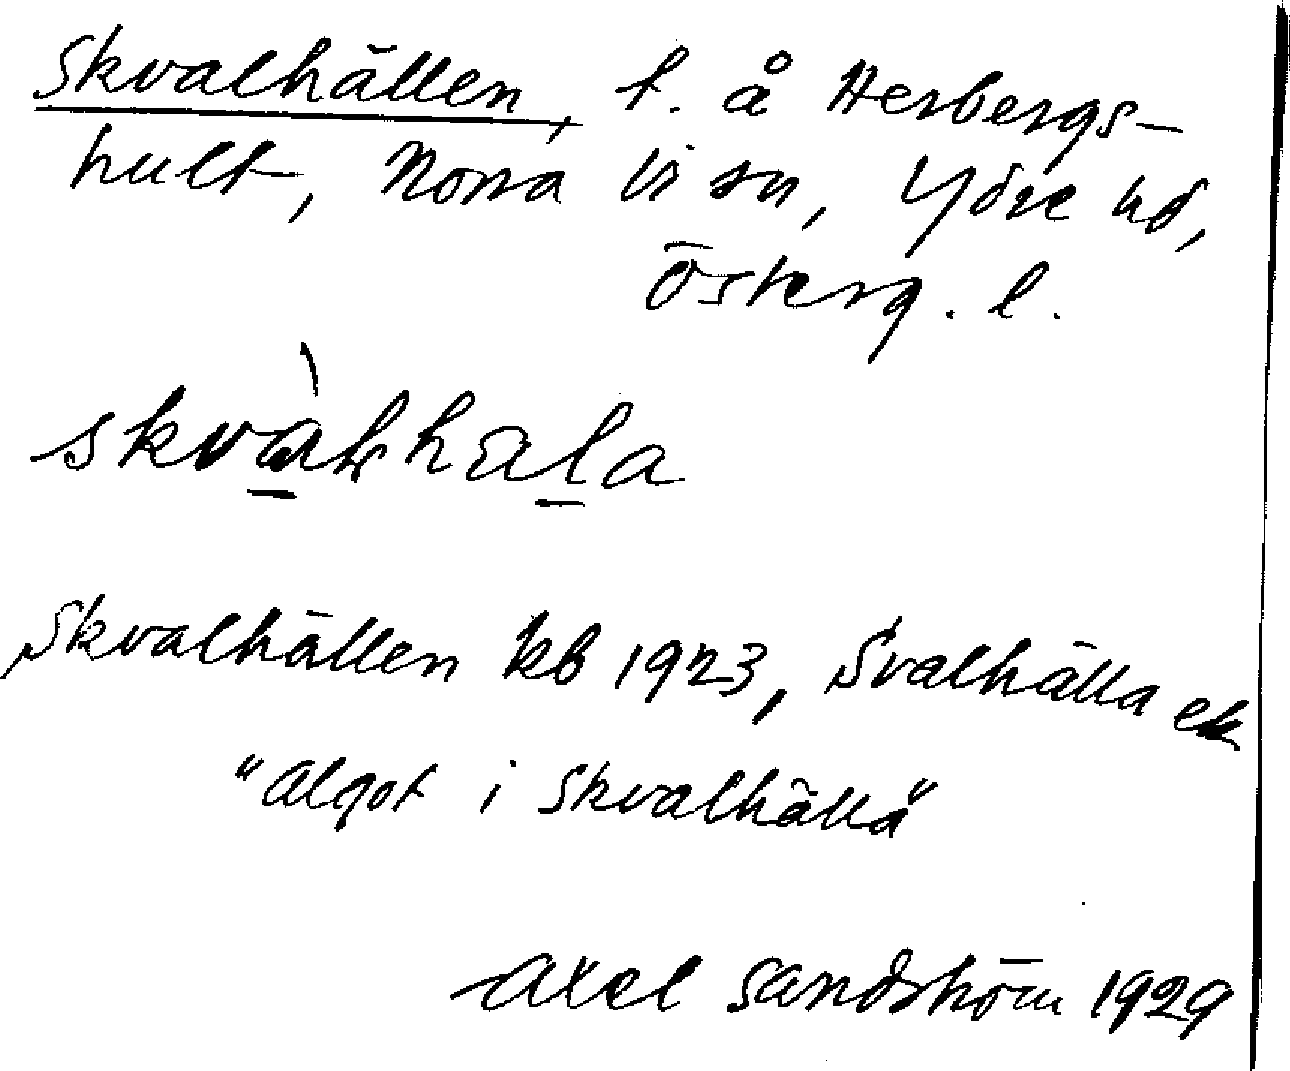 Skvalhällen, t. å Herbergs-
hult, Norra Vi sn, Ydre hd,
Österg. l.
skvàlhala
Skvalhällen kb 1923, Svalhälla ek
"Algot i Skvalhälla"
Axel Sandström 1929